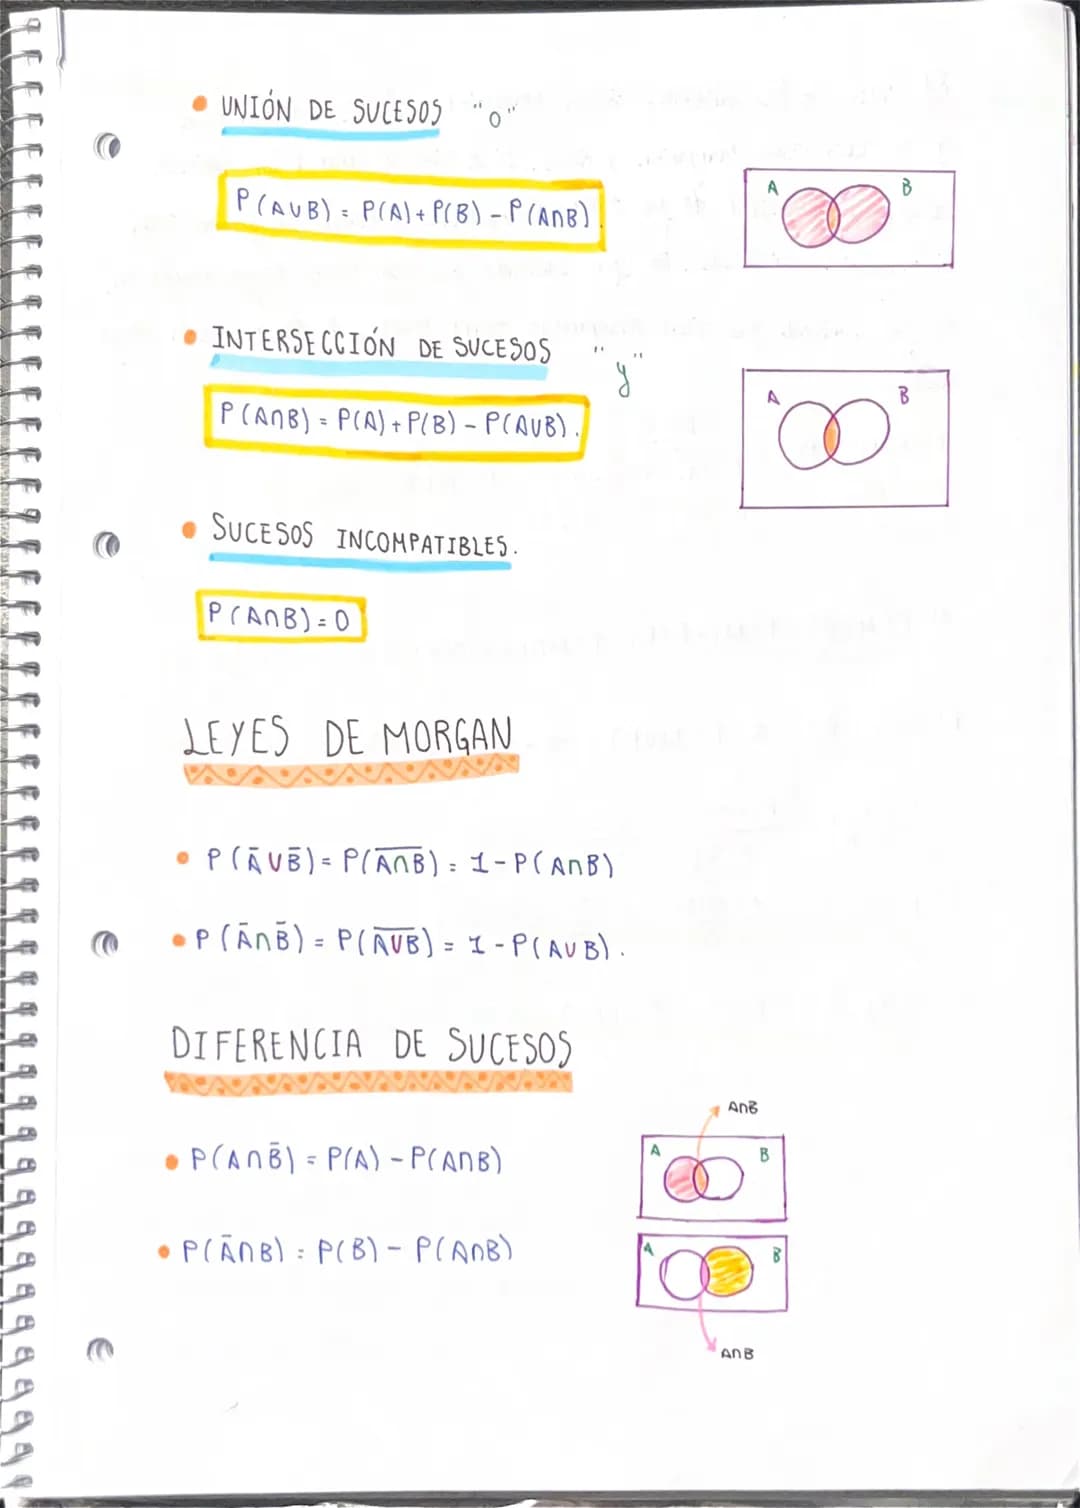 • UNIÓN DE SUCESOS "o"
P(A∪B) = P(A) + P(B) - P(A∩B)
A B
• INTERSECCIÓN DE SUCESOS "y"
P(A∩B) = P(A) + P(B) - P(A∪B).
A B
• SUCESOS INCOMPATIBLES.
P(A∩B) = 0
LEYES DE MORGAN
• P(A̅∪B̅) = P(A̅∩̅B̅) = 1 - P(A∩B)
• P(A̅∩B̅) = P(A̅∪̅B̅) = 1 - P(A∪B).
DIFERENCIA DE SUCESOS
A∩B
• P(A∩B̅) = P(A) - P(A∩B)
A B
• P(A̅∩B) = P(B) - P(A∩B)
A B
A∩B